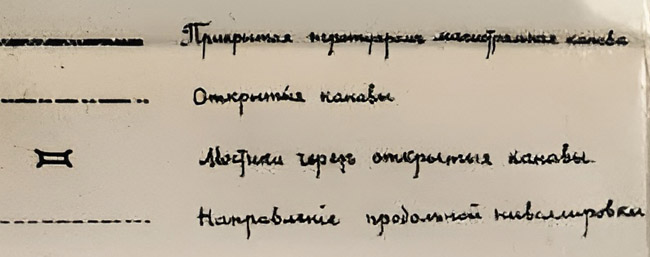 Прикрытая тротуаромъ магистральная канава
Открытыя канавы
Мостики черезъ открытыя канавы.
Направленіе продольной нивеллировки